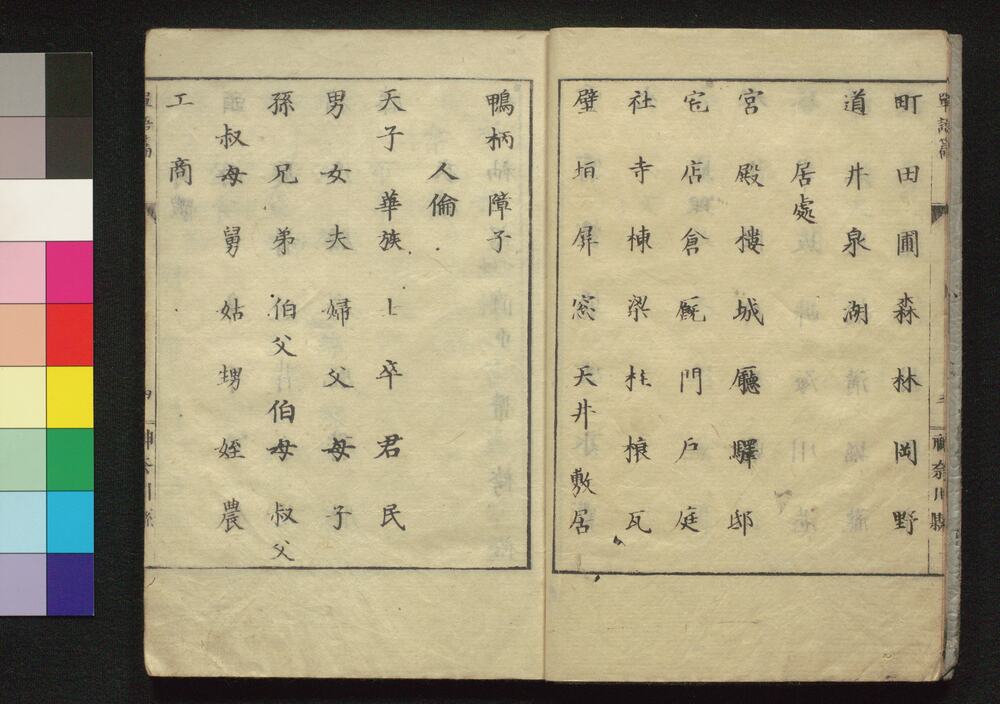 單語篇
三
神奈川縣
町 田 圃 森 林 岡 野
道 井 泉 湖
居處
宮 殿 樓 城 廳 驛 邸
宅 店 倉 厩 門 戸 庭
社 寺 棟 梁 柱 榱 瓦
壁 垣 屏 窓 天井 敷居
鴨柄 障子
人倫
天子 華族 士 卒 君 民
男 女 夫 婦 父 母 子
孫 兄 弟 伯父 伯母 叔父
叔母 舅 姑 甥 姪 農
工 商
四
神奈川縣